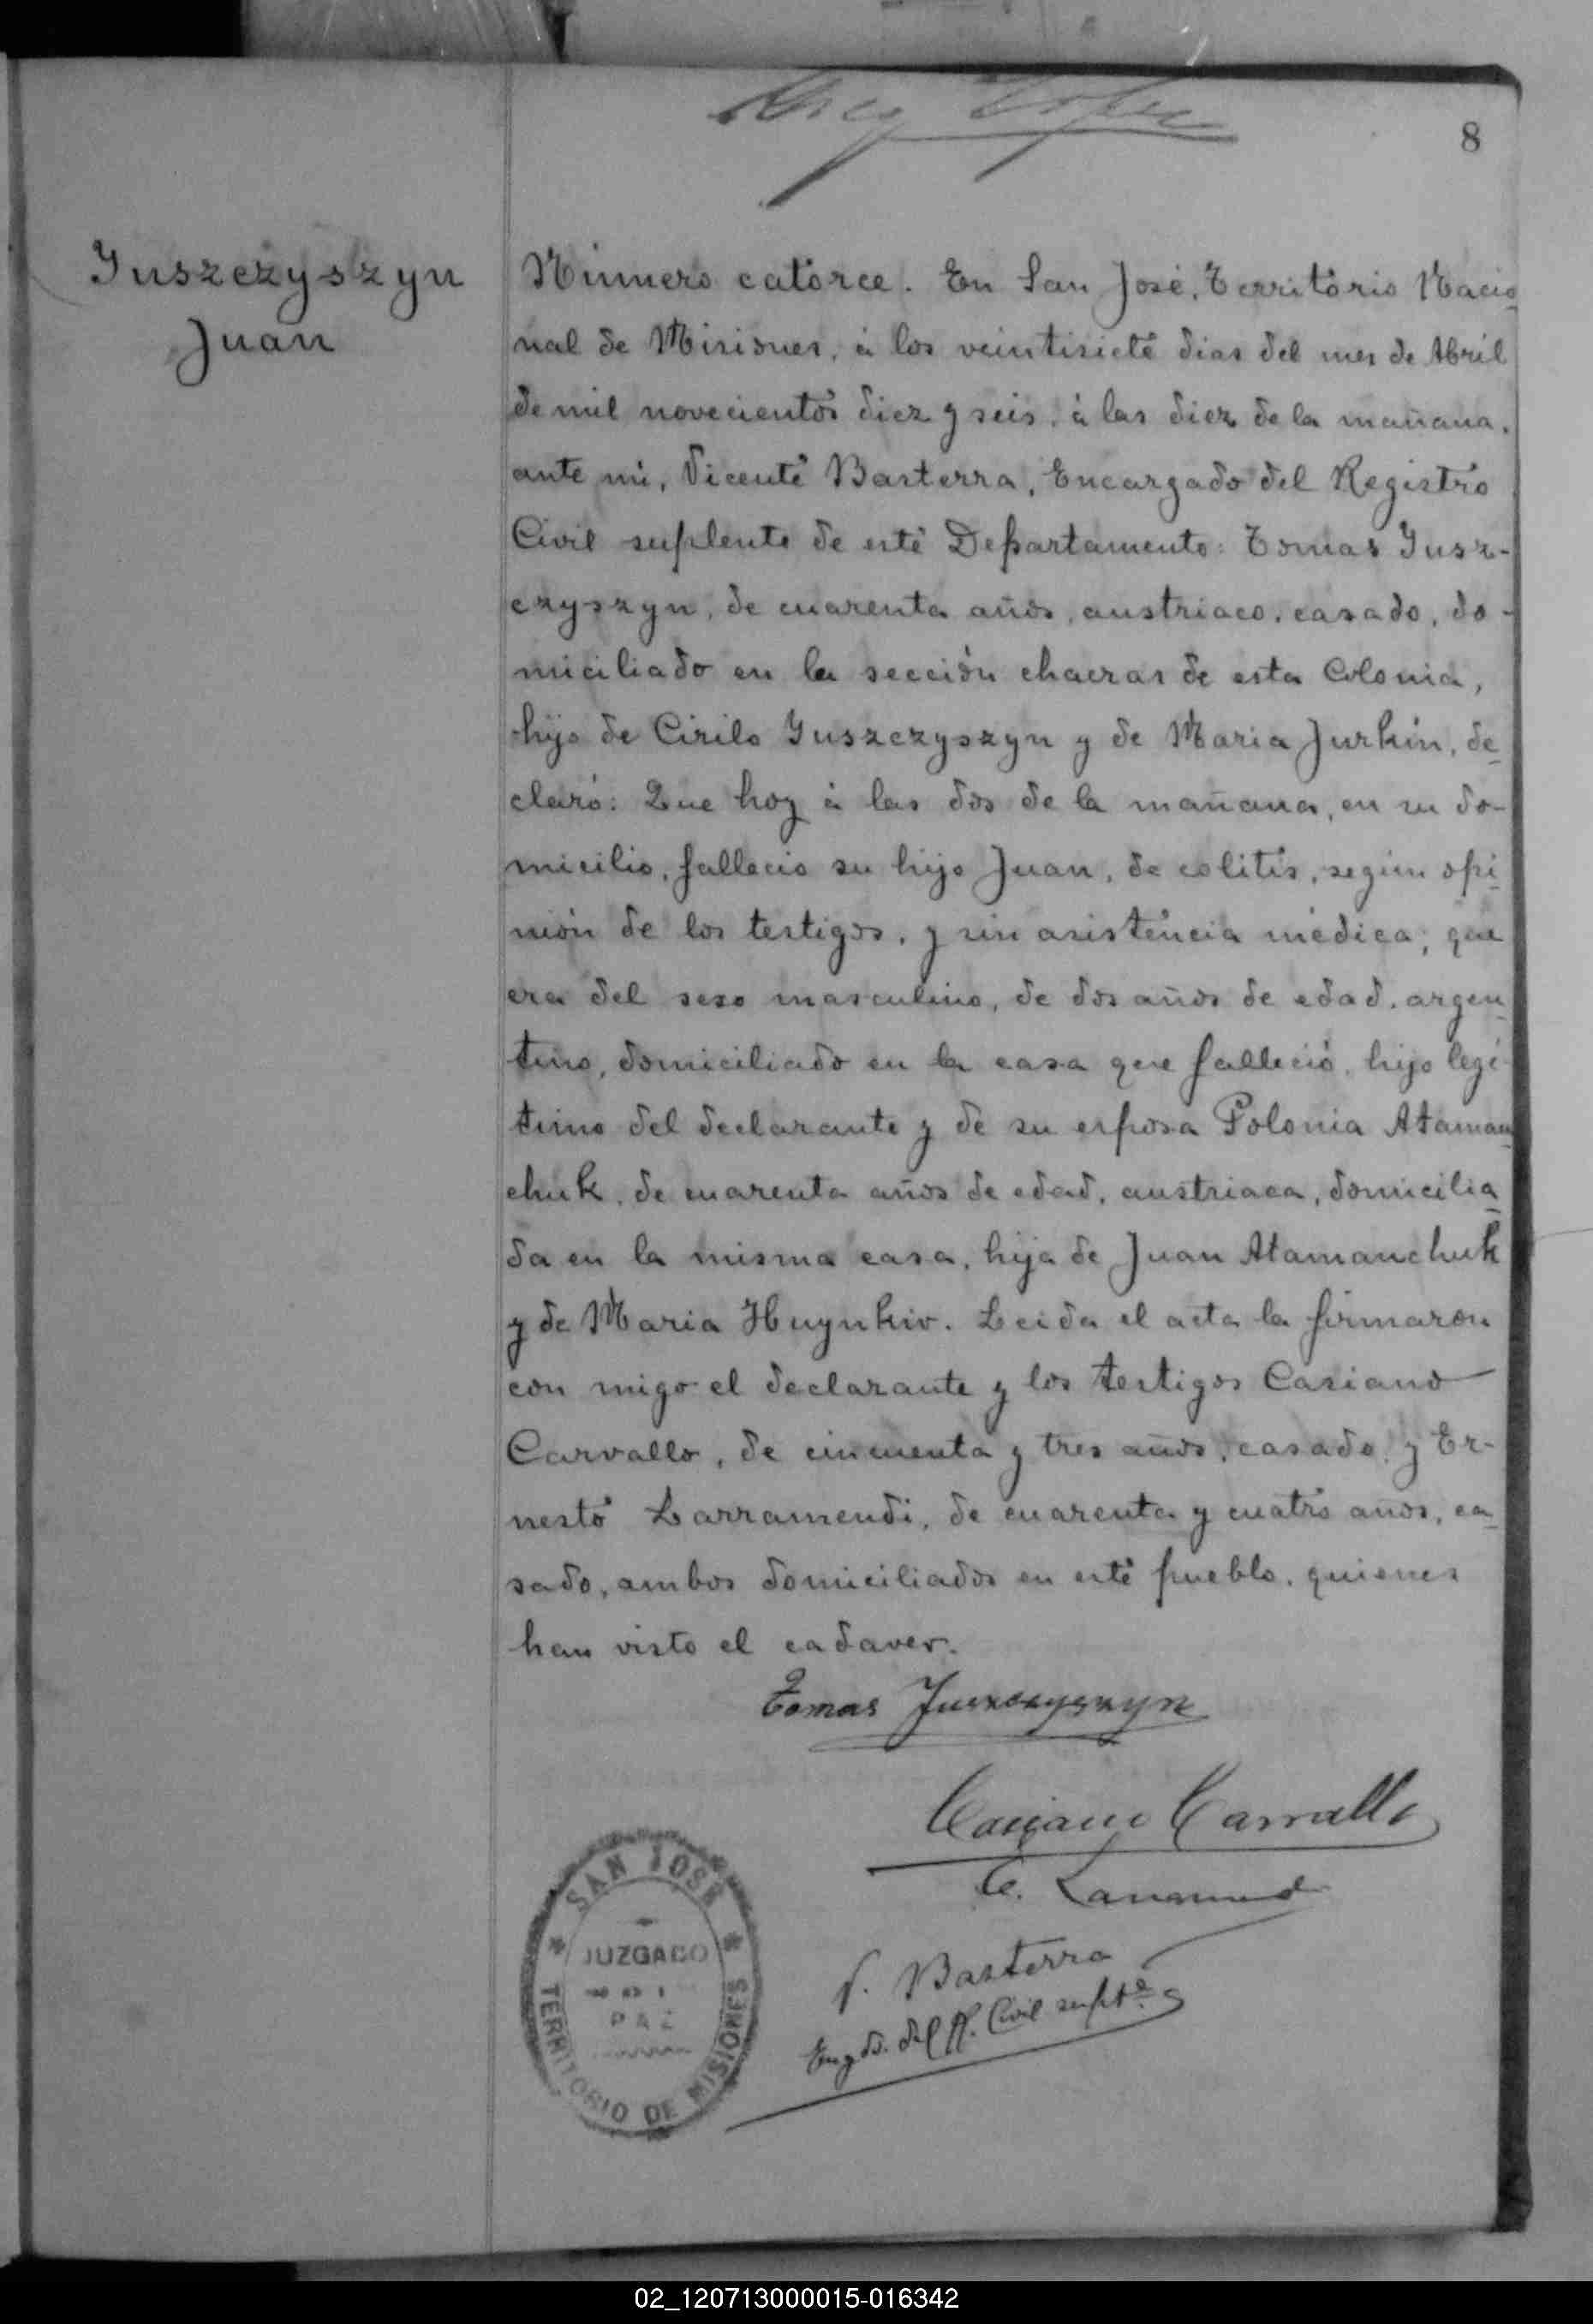 8
Yuszczyszyn
Juan
Número catorce. En San José, Territorio Nacio
nal de Misiones, á los veintisiete dias del mes de Abril
de mil novecientos diez y seis, á las diez de la mañana,
ante mi, Vicente Basterra, Encargado del Registro
Civil suplente de este Departamento: Tomas Yusz-
czyszyn, de cuarenta años, austriaco, casado, do-
miciliado en la sección chacras de esta Colonia,
hijo de Cirilo Yuszczyszyn y de Maria Jurkin, de
claró: Que hoy á las dos de la mañana, en su do-
micilio, fallecio su hijo Juan, de colitis, según opi
nión de los testigos, y sin asistencia médica; que
era del sexo masculino, de dos años de edad, argen
tino, domiciliado en la casa que falleció, hijo legí
timo del declarante y de su esposa Polonia Ataman
chuk, de cuarenta años de edad, austriaca, domicilia
da en la misma casa, hija de Juan Atamanchuk
y de Maria Huynkiv. Leida el acta la firmaron
con migo el declarante y los testigos Casiano
Carvallo, de cincuenta y tres años, casado, y Er-
nesto Larramendi, de cuarenta y cuatro años, ca
sado, ambos domiciliados en este pueblo, quienes
han visto el cadaver.
Tomas Juszczyszyn
Casiano Carvallo
E. Larramendi
V. Basterra
Engdo. del R. Civil suplte
SAN JOSE
JUZGADO
DE
PAZ
TERRITORIO DE MISIONES
02_120713000015-016342